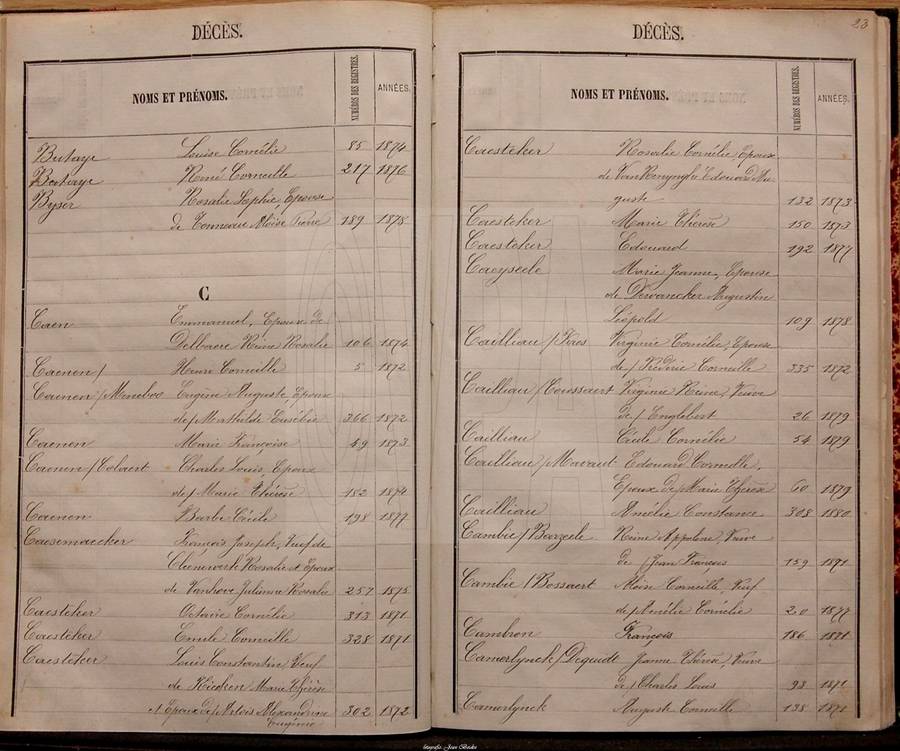 DÉCÈS.
NOMS ET PRÉNOMS. NUMÉROS DES REGISTRES. ANNÉES.
Butaye Louise Cornélie 85 1874
Butaye René Corneille 217 1876
Byser Rosalie Sophie, Epouse
de Tonneau Aloïse Pierre 189 1878
C
Caen Emmanuel, Epoux de
Delbaere Reine Rosalie 106 1874
Caenen / Henri Corneille 5 1872
Caenen / Meneboo Eugène Auguste, Epoux
de / Mathilde Eusébie 366 1872
Caenen Marie Françoise 49 1873
Caenen / Calvaert Charles Louis, Epoux
de / Marie Thérèse 182 1874
Caenen Barbe Cécile 198 1877
Caesemaecker François Joseph, Veuf de
Rosalie et Epoux
de Vanhove Julienne Rosalie 257 1875
Caesteker Octavie Cornélie 313 1871
Caesteker Emile Corneille 328 1871
Caesteker Louis Constantin, Veuf
de Kieken Marie Thérèse
et Epoux de / Artois Alexandrine 302 1872
Eugénie
23
DÉCÈS.
NOMS ET PRÉNOMS. NUMÉROS DES REGISTRES. ANNÉES.
Caesteker Rosalie Cornélie, Epouse
de Edouard Au-
guste 132 1873
Caesteker Marie Thérèse 150 1873
Caesteker Edouard 192 1877
Caeyseele Marie Jeanne, Epouse
de Dewancker Augustin
Léopold 109 1878
Cailliau / Virginie Cornélie, Epouse
de / Frédéric Corneille 335 1872
Cailliau / Toussaert Virginie Reine, Veuve
de / Englebert 26 1879
Cailliau Cécile Cornélie 54 1879
Cailliau / Mavaut Edouard Corneille,
Epoux de / Marie Thérèse 60 1879
Cailliau Amélie Constance 308 1880
Cambie / Barzeele Reine Appoline, Veuve
de / Jean François 159 1871
Cambie / Bossaert Aloïse Corneille, Veuf
de / Amélie Cornélie 20 1877
Cambron François 186 1871
Camerlynck / Dequidt Jeanne Thérèse, Veuve
de / Charles Louis 93 1871
Camerlynck Auguste Corneille 138 1871